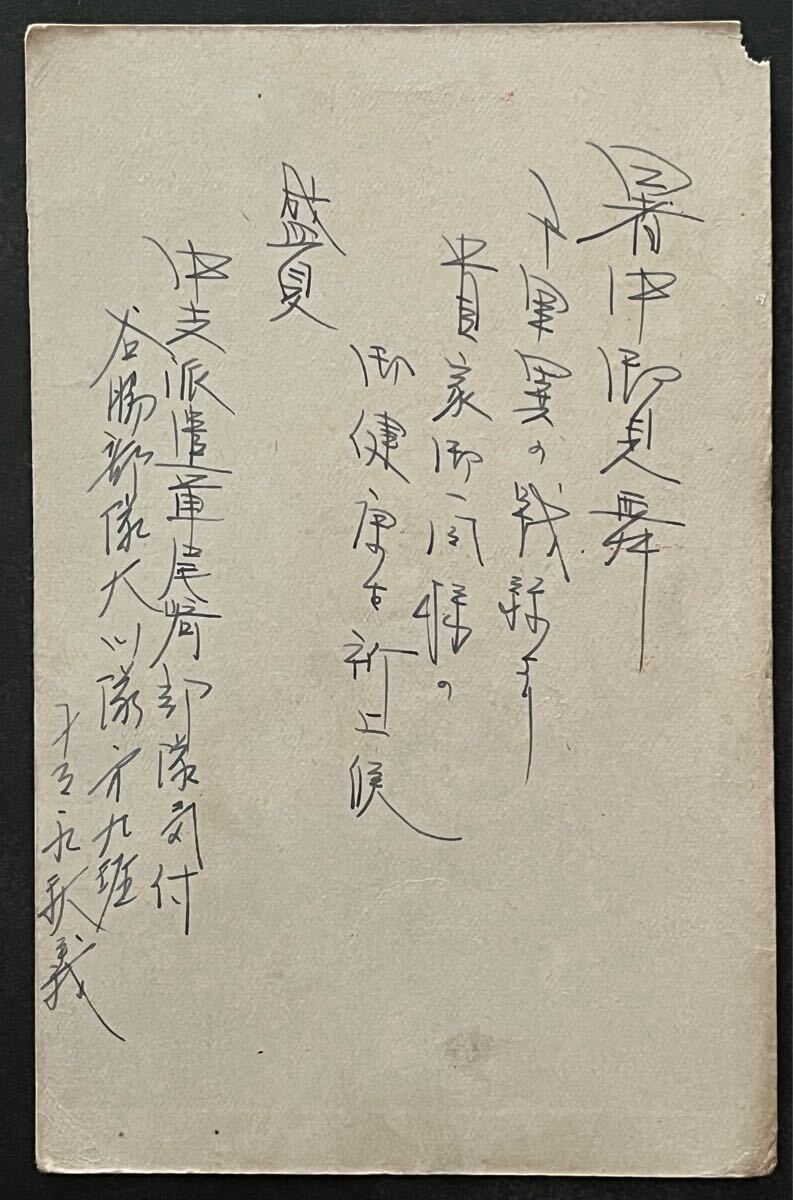 暑中御見舞
異の戦線より
貴家御一同様の
御健康を祈上候
盛夏
中支派遣軍尾崎部隊気付
谷勝部隊大川隊第九班
永義